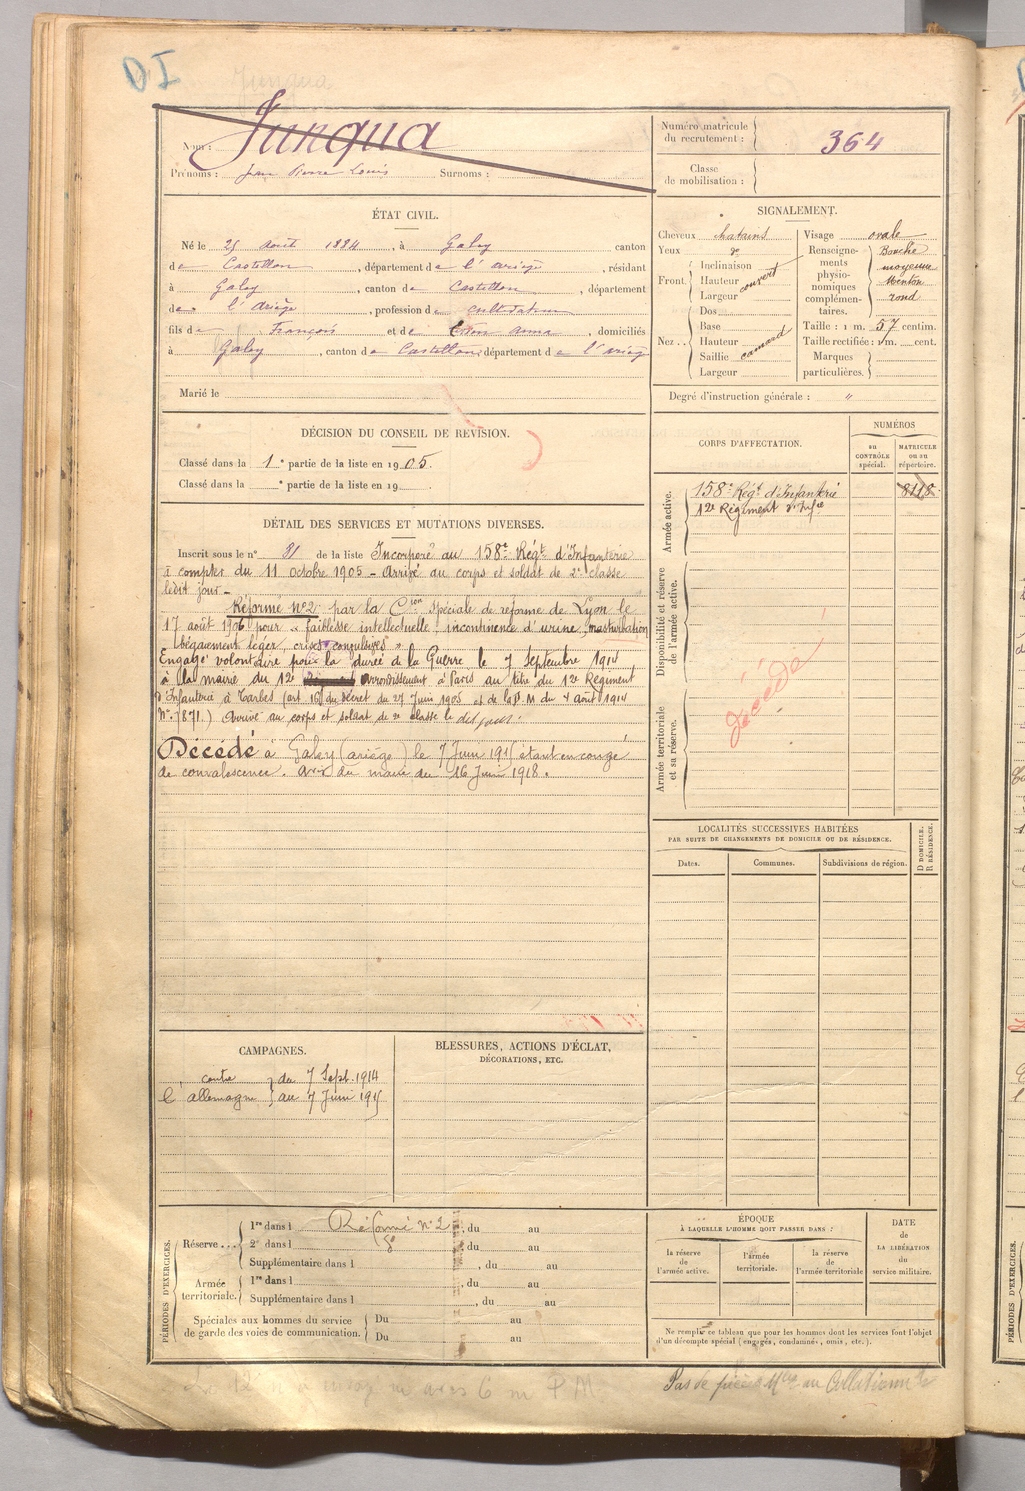 DI
Junqua
Nom : Junqua
Prénoms : Jean Pierre Louis Surnoms :
Numéro matricule du recrutement : 364
Classe de mobilisation :
ÉTAT CIVIL.
Né le 25 août 1884, à Galey canton
de Castillon, département de l'ariège, résidant
à Galey, canton de Castillon, département
de l'ariège, profession de cultivateur
fils de François et de Anna, domiciliés
à Galey, canton de Castillon, département de l'ariège
Marié le
SIGNALEMENT.
Cheveux chatains
Yeux do
Front. Inclinaison
Hauteur couvert
Largeur
Nez.. Dos
Base
Hauteur
Saillie camard
Largeur
Visage ovale
Renseignements physionomiques complémentaires. Bouche moyenne Menton rond
Taille : 1 m. 57 centim.
Taille rectifiée : 1 m. cent.
Marques particulières.
Degré d'instruction générale : "
DÉCISION DU CONSEIL DE REVISION.
Classé dans la 1e partie de la liste en 1905.
Classé dans la e partie de la liste en 19
DÉTAIL DES SERVICES ET MUTATIONS DIVERSES.
Inscrit sous le n° 81 de la liste Incorporé au 158e Régt d'Infanterie
à compter du 11 octobre 1905 - Arrivé au corps et soldat de 2e classe
ledit jour -
Réformé n°2 par la Cion spéciale de réforme de Lyon le
17 août 1906 pour « faiblesse intellectuelle, incontinence d'urine, masturbation
bégaiement léger, crises convulsives »
Engagé volontaire pour la durée de la Guerre le 7 septembre 1914
à la mairie du 12e arrondissement à Paris au titre du 12e Regiment
d'Infanterie à Tarbes (art 15 du décret du 27 Juin 1905 et de la D.M du 4 août 1914
N° 7871.) Arrivé au corps et soldat de 2e classe le dit jour.
Décédé à Galey (ariège) le 7 Juin 1915 étant en congé
de convalescence. avis du maire du 16 Juin 1918.
CORPS D'AFFECTATION.
NUMÉROS
au CONTRÔLE spécial.
MATRICULE ou au répertoire.
Armée active.
158e Régt d'Infanterie 8118
12e Régiment d'Infie
Disponibilité et réserve de l'armée active.
Décédé
Armée territoriale et sa réserve.
LOCALITÉS SUCCESSIVES HABITÉES
PAR SUITE DE CHANGEMENTS DE DOMICILE OU DE RÉSIDENCE.
Dates. Communes. Subdivisions de région.
D DOMICILE.
R RÉSIDENCE.
CAMPAGNES.
contre } du 7 Sept. 1914
l'allemagne } au 7 Juin 1915
BLESSURES, ACTIONS D'ÉCLAT,
DÉCORATIONS, ETC.
PÉRIODES D'EXERCICES.
Réserve... 1re dans l Réformé n°2, du au
2e dans l do, du au
Supplémentaire dans l, du au
Armée territoriale. 1re dans l, du au
Supplémentaire dans l, du au
Spéciales aux hommes du service de garde des voies de communication. Du au
Du au
ÉPOQUE
À LAQUELLE L'HOMME DOIT PASSER DANS :
la réserve de l'armée active.
l'armée territoriale.
la réserve de l'armée territoriale
DATE
de
LA LIBÉRATION
du
service militaire.
Ne remplir ce tableau que pour les hommes dont les services font l'objet
d'un décompte spécial (engagés, condamnés, omis, etc.).
Pas de
PÉRIODES D'EXERCICES.